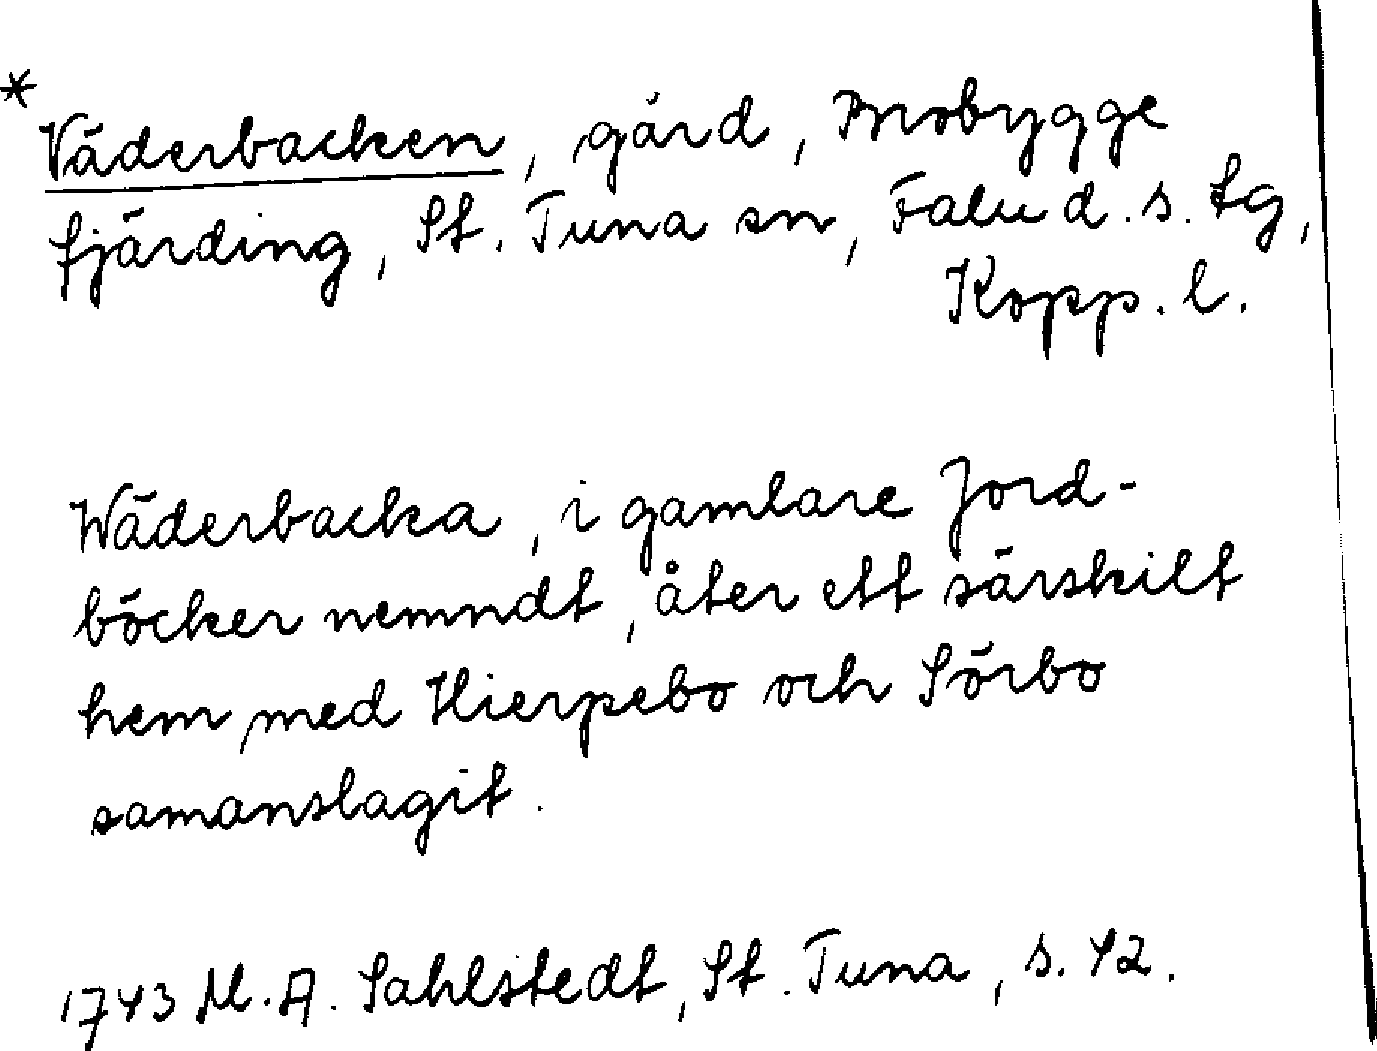 *
Väderbacken, gård, Brobygge
fjärding, St. Tuna sn, Falu d. s. tg,
Kopp. l.
Wäderbacka, i gamlare Jord-
böcker nemndt, åter ett särskilt
hem, med Hierpebo och Sörbo
samanslagit.
1743 M. A. Sahlstedt, St. Tuna, s. 42.